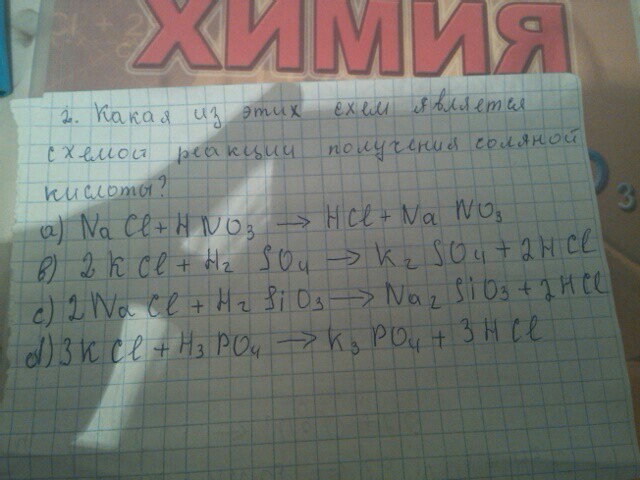 ХИМИЯ
2. Какая из этих схем является
схемой реакции получения соляной
кислоты?
a) NaCl + HNO₃ → HCl + NaNO₃
в) 2KCl + H₂SO₄ → K₂SO₄ + 2HCl
c) 2NaCl + H₂SiO₃ → Na₂SiO₃ + 2HCl
d) 3KCl + H₃PO₄ → K₃PO₄ + 3HCl